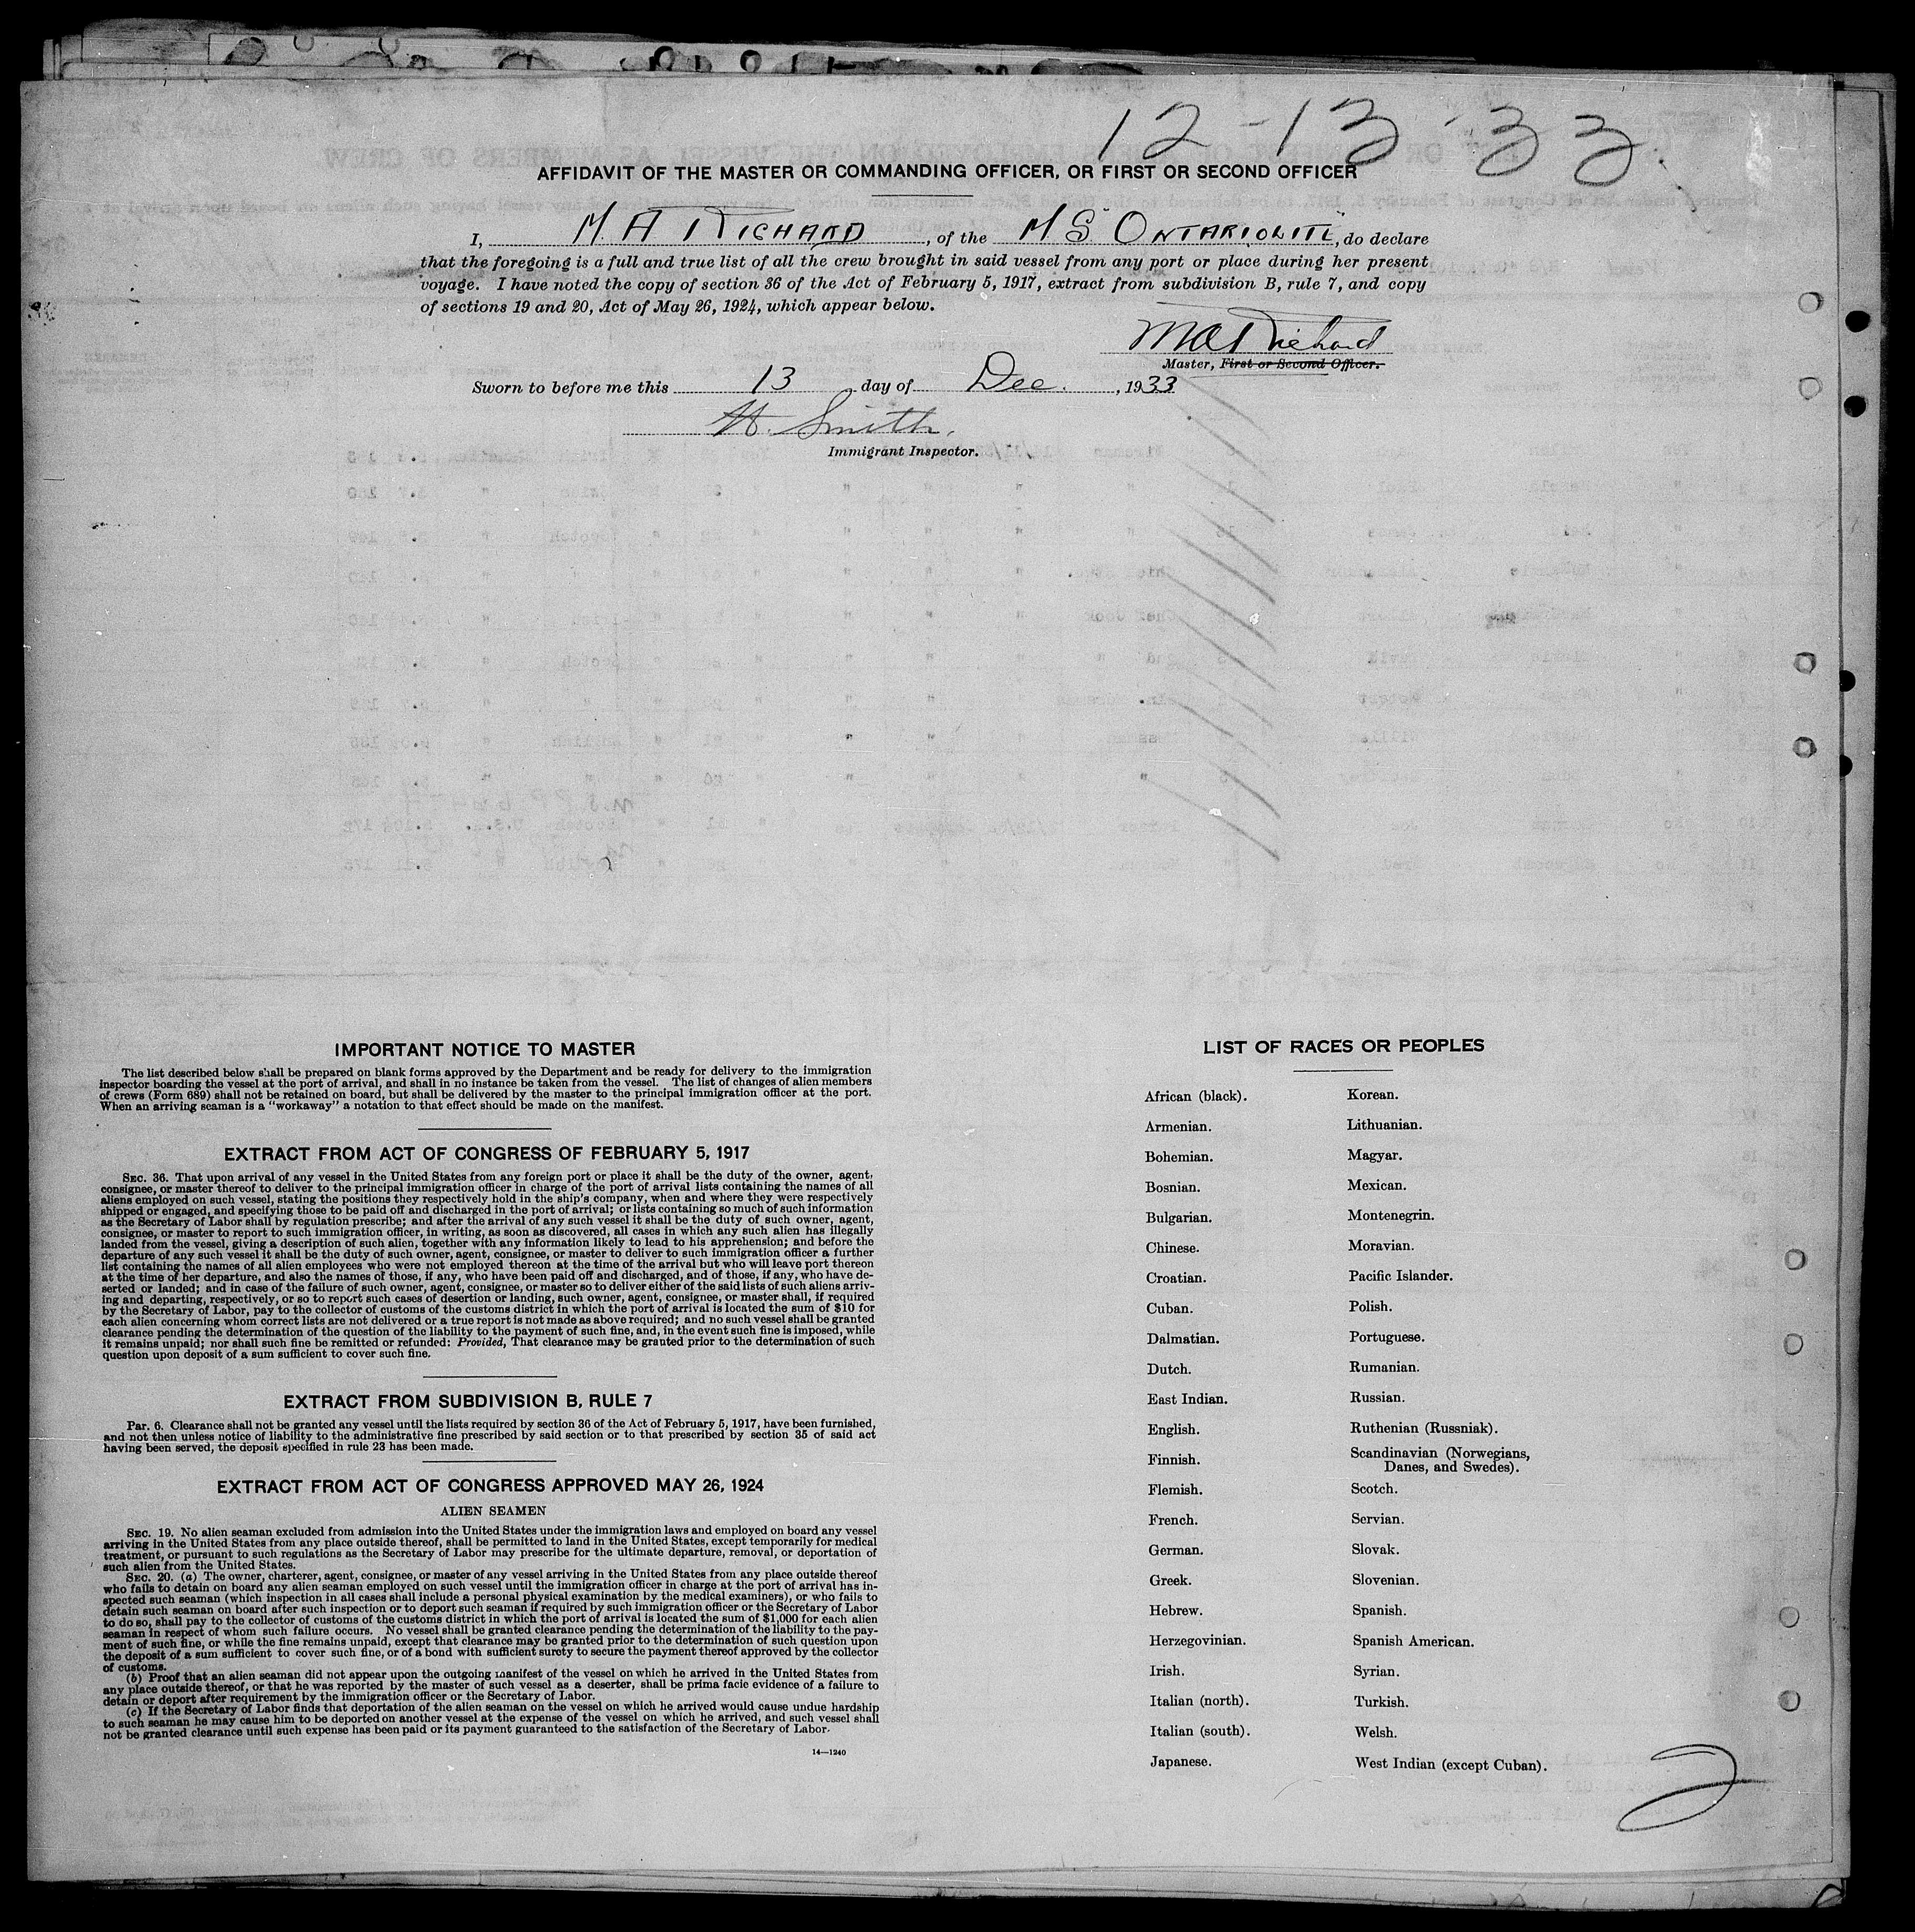 12-13-33
AFFIDAVIT OF THE MASTER OR COMMANDING OFFICER, OR FIRST OR SECOND OFFICER
I, M. A Richard, of the M. S. "Ontariolite", do declare
that the foregoing is a full and true list of all the crew brought in said vessel from any port or place during her present
voyage. I have noted the copy of section 36 of the Act of February 5, 1917, extract from subdivision B, rule 7, and copy
of sections 19 and 20, Act of May 26, 1924, which appear below.
MA Richard
Master, First or Second Officer.
Sworn to before me this 13 day of Dec., 1933
H. Smith.
Immigrant Inspector.
IMPORTANT NOTICE TO MASTER
The list described below shall be prepared on blank forms approved by the Department and be ready for delivery to the immigration
inspector boarding the vessel at the port of arrival, and shall in no instance be taken from the vessel. The list of changes of alien members
of crews (Form 689) shall not be retained on board, but shall be delivered by the master to the principal immigration officer at the port.
When an arriving seaman is a "workaway" a notation to that effect should be made on the manifest.
EXTRACT FROM ACT OF CONGRESS OF FEBRUARY 5, 1917
SEC. 36. That upon arrival of any vessel in the United States from any foreign port or place it shall be the duty of the owner, agent,
consignee, or master thereof to deliver to the principal immigration officer in charge of the port of arrival lists containing the names of all
aliens employed on such vessel, stating the positions they respectively hold in the ship's company, when and where they were respectively
shipped or engaged, and specifying those to be paid off and discharged in the port of arrival; or lists containing so much of such information
as the Secretary of Labor shall by regulation prescribe; and after the arrival of any such vessel it shall be the duty of such owner, agent,
consignee, or master to report to such immigration officer, in writing, as soon as discovered, all cases in which any such alien has illegally
landed from the vessel, giving a description of such alien, together with any information likely to lead to his apprehension; and before the
departure of any such vessel it shall be the duty of such owner, agent, consignee, or master to deliver to such immigration officer a further
list containing the names of all alien employees who were not employed thereon at the time of the arrival but who will leave port thereon
at the time of her departure, and also the names of those, if any, who have been paid off and discharged, and of those, if any, who have de-
serted or landed; and in case of the failure of such owner, agent, consignee, or master so to deliver either of the said lists of such aliens arriv-
ing and departing, respectively, or so to report such cases of desertion or landing, such owner, agent, consignee, or master shall, if required
by the Secretary of Labor, pay to the collector of customs of the customs district in which the port of arrival is located the sum of $10 for
each alien concerning whom correct lists are not delivered or a true report is not made as above required; and no such vessel shall be granted
clearance pending the determination of the question of the liability to the payment of such fine, and, in the event such fine is imposed, while
it remains unpaid; nor shall such fine be remitted or refunded: Provided, That clearance may be granted prior to the determination of such
question upon deposit of a sum sufficient to cover such fine.
EXTRACT FROM SUBDIVISION B, RULE 7
Par. 6. Clearance shall not be granted any vessel until the lists required by section 36 of the Act of February 5, 1917, have been furnished,
and not then unless notice of liability to the administrative fine prescribed by said section or to that prescribed by section 35 of said act
having been served, the deposit specified in rule 23 has been made.
EXTRACT FROM ACT OF CONGRESS APPROVED MAY 26, 1924
ALIEN SEAMEN
SEC. 19. No alien seaman excluded from admission into the United States under the immigration laws and employed on board any vessel
arriving in the United States from any place outside thereof, shall be permitted to land in the United States, except temporarily for medical
treatment, or pursuant to such regulations as the Secretary of Labor may prescribe for the ultimate departure, removal, or deportation of
such alien from the United States.
SEC. 20. (a) The owner, charterer, agent, consignee, or master of any vessel arriving in the United States from any place outside thereof
who fails to detain on board any alien seaman employed on such vessel until the immigration officer in charge at the port of arrival has in-
spected such seaman (which inspection in all cases shall include a personal physical examination by the medical examiners), or who fails to
detain such seaman on board after such inspection or to deport such seaman if required by such immigration officer or the Secretary of Labor
to do so, shall pay to the collector of customs of the customs district in which the port of arrival is located the sum of $1,000 for each alien
seaman in respect of whom such failure occurs. No vessel shall be granted clearance pending the determination of the liability to the pay-
ment of such fine, or while the fine remains unpaid, except that clearance may be granted prior to the determination of such question upon
the deposit of a sum sufficient to cover such fine, or of a bond with sufficient surety to secure the payment thereof approved by the collector
of customs.
(b) Proof that an alien seaman did not appear upon the outgoing manifest of the vessel on which he arrived in the United States from
any place outside thereof, or that he was reported by the master of such vessel as a deserter, shall be prima facie evidence of a failure to
detain or deport after requirement by the immigration officer or the Secretary of Labor.
(c) If the Secretary of Labor finds that deportation of the alien seaman on the vessel on which he arrived would cause undue hardship
to such seaman he may cause him to be deported on another vessel at the expense of the vessel on which he arrived, and such vessel shall
not be granted clearance until such expense has been paid or its payment guaranteed to the satisfaction of the Secretary of Labor.
14—1240
LIST OF RACES OR PEOPLES
African (black).
Armenian.
Bohemian.
Bosnian.
Bulgarian.
Chinese.
Croatian.
Cuban.
Dalmatian.
Dutch.
East Indian.
English.
Finnish.
Flemish.
French.
German.
Greek.
Hebrew.
Herzegovinian.
Irish.
Italian (north).
Italian (south).
Japanese.
Korean.
Lithuanian.
Magyar.
Mexican.
Montenegrin.
Moravian.
Pacific Islander.
Polish.
Portuguese.
Rumanian.
Russian.
Ruthenian (Russniak).
Scandinavian (Norwegians,
Danes, and Swedes).
Scotch.
Servian.
Slovak.
Slovenian.
Spanish.
Spanish American.
Syrian.
Turkish.
Welsh.
West Indian (except Cuban).
2